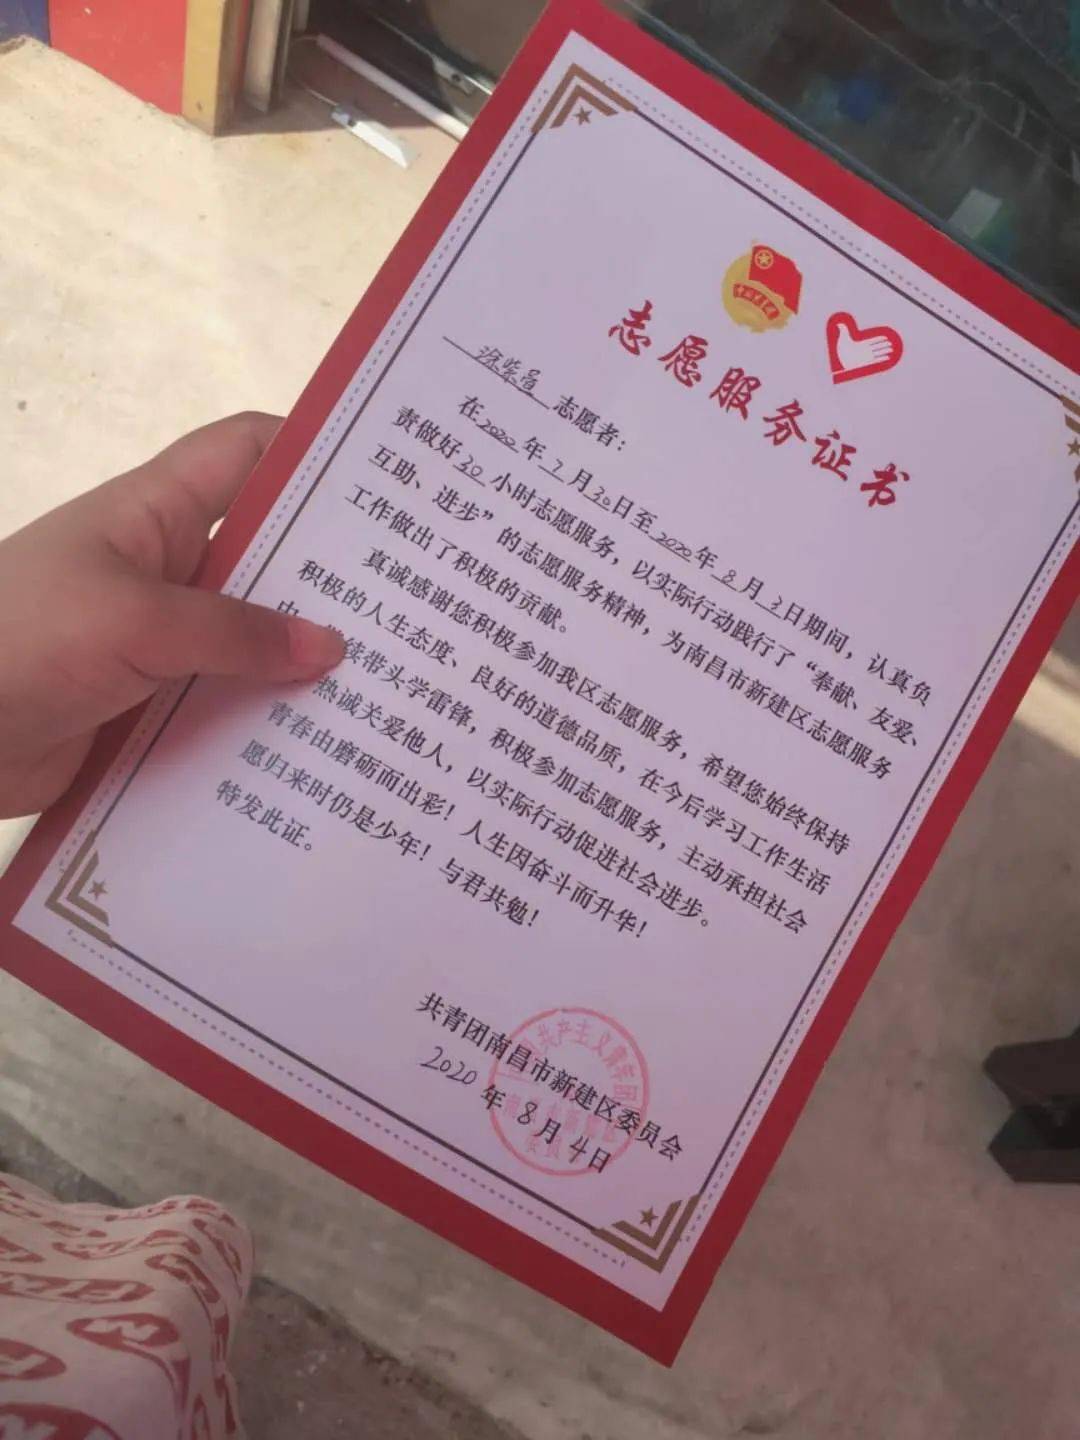 志愿服务证书
涂紫眉 志愿者：
在2020年7月30日至2020年8月3日期间，认真负
责做好30小时志愿服务，以实际行动践行了“奉献、友爱、
互助、进步”的志愿服务精神，为南昌市新建区志愿服务
工作做出了积极的贡献。
真诚感谢您积极参加我区志愿服务，希望您始终保持
积极的人生态度、良好的道德品质，在今后学习工作生活
续带头学雷锋，积极参加志愿服务，主动承担社会
热诚关爱他人，以实际行动促进社会进步。
青春由磨砺而出彩！人生因奋斗而升华！
愿归来时仍是少年！与君共勉！
特发此证。
共青团南昌市新建区委员会
2020年8月4日